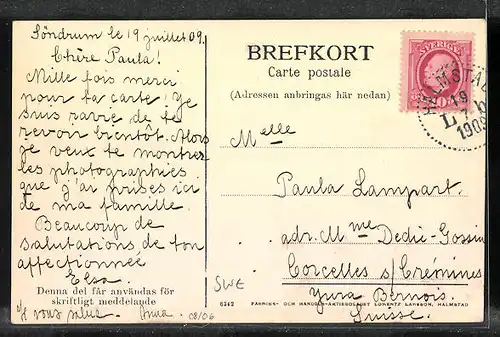 Söndrum le 19 juillet 09.
Chère Paula!
Mille fois merci
pour ta carte! Je
suis ravie de te
revoir bientôt. Alors
je veux te montrer
les photographies
que j'ai prises ici
de ma famille.
Beaucoup de
salutations de ton
affectionnée
Elsa.
Denna del får användas för
skriftligt meddelande
Je vous salue. Anna.
08/06
BREFKORT
Carte postale
(Adressen anbringas här nedan)
Melle
Paula Lampart.
adr. Mme Dedie-Gossin
Corcelles s/Crémines
Jura Bernois.
Suisse.
SWE
6342 FABRIKS- OCH HANDELS-AKTIEBOLAGET LORENTZ LARSSON, HALMSTAD
SVERIGE
HALMSTAD
19 7
1909